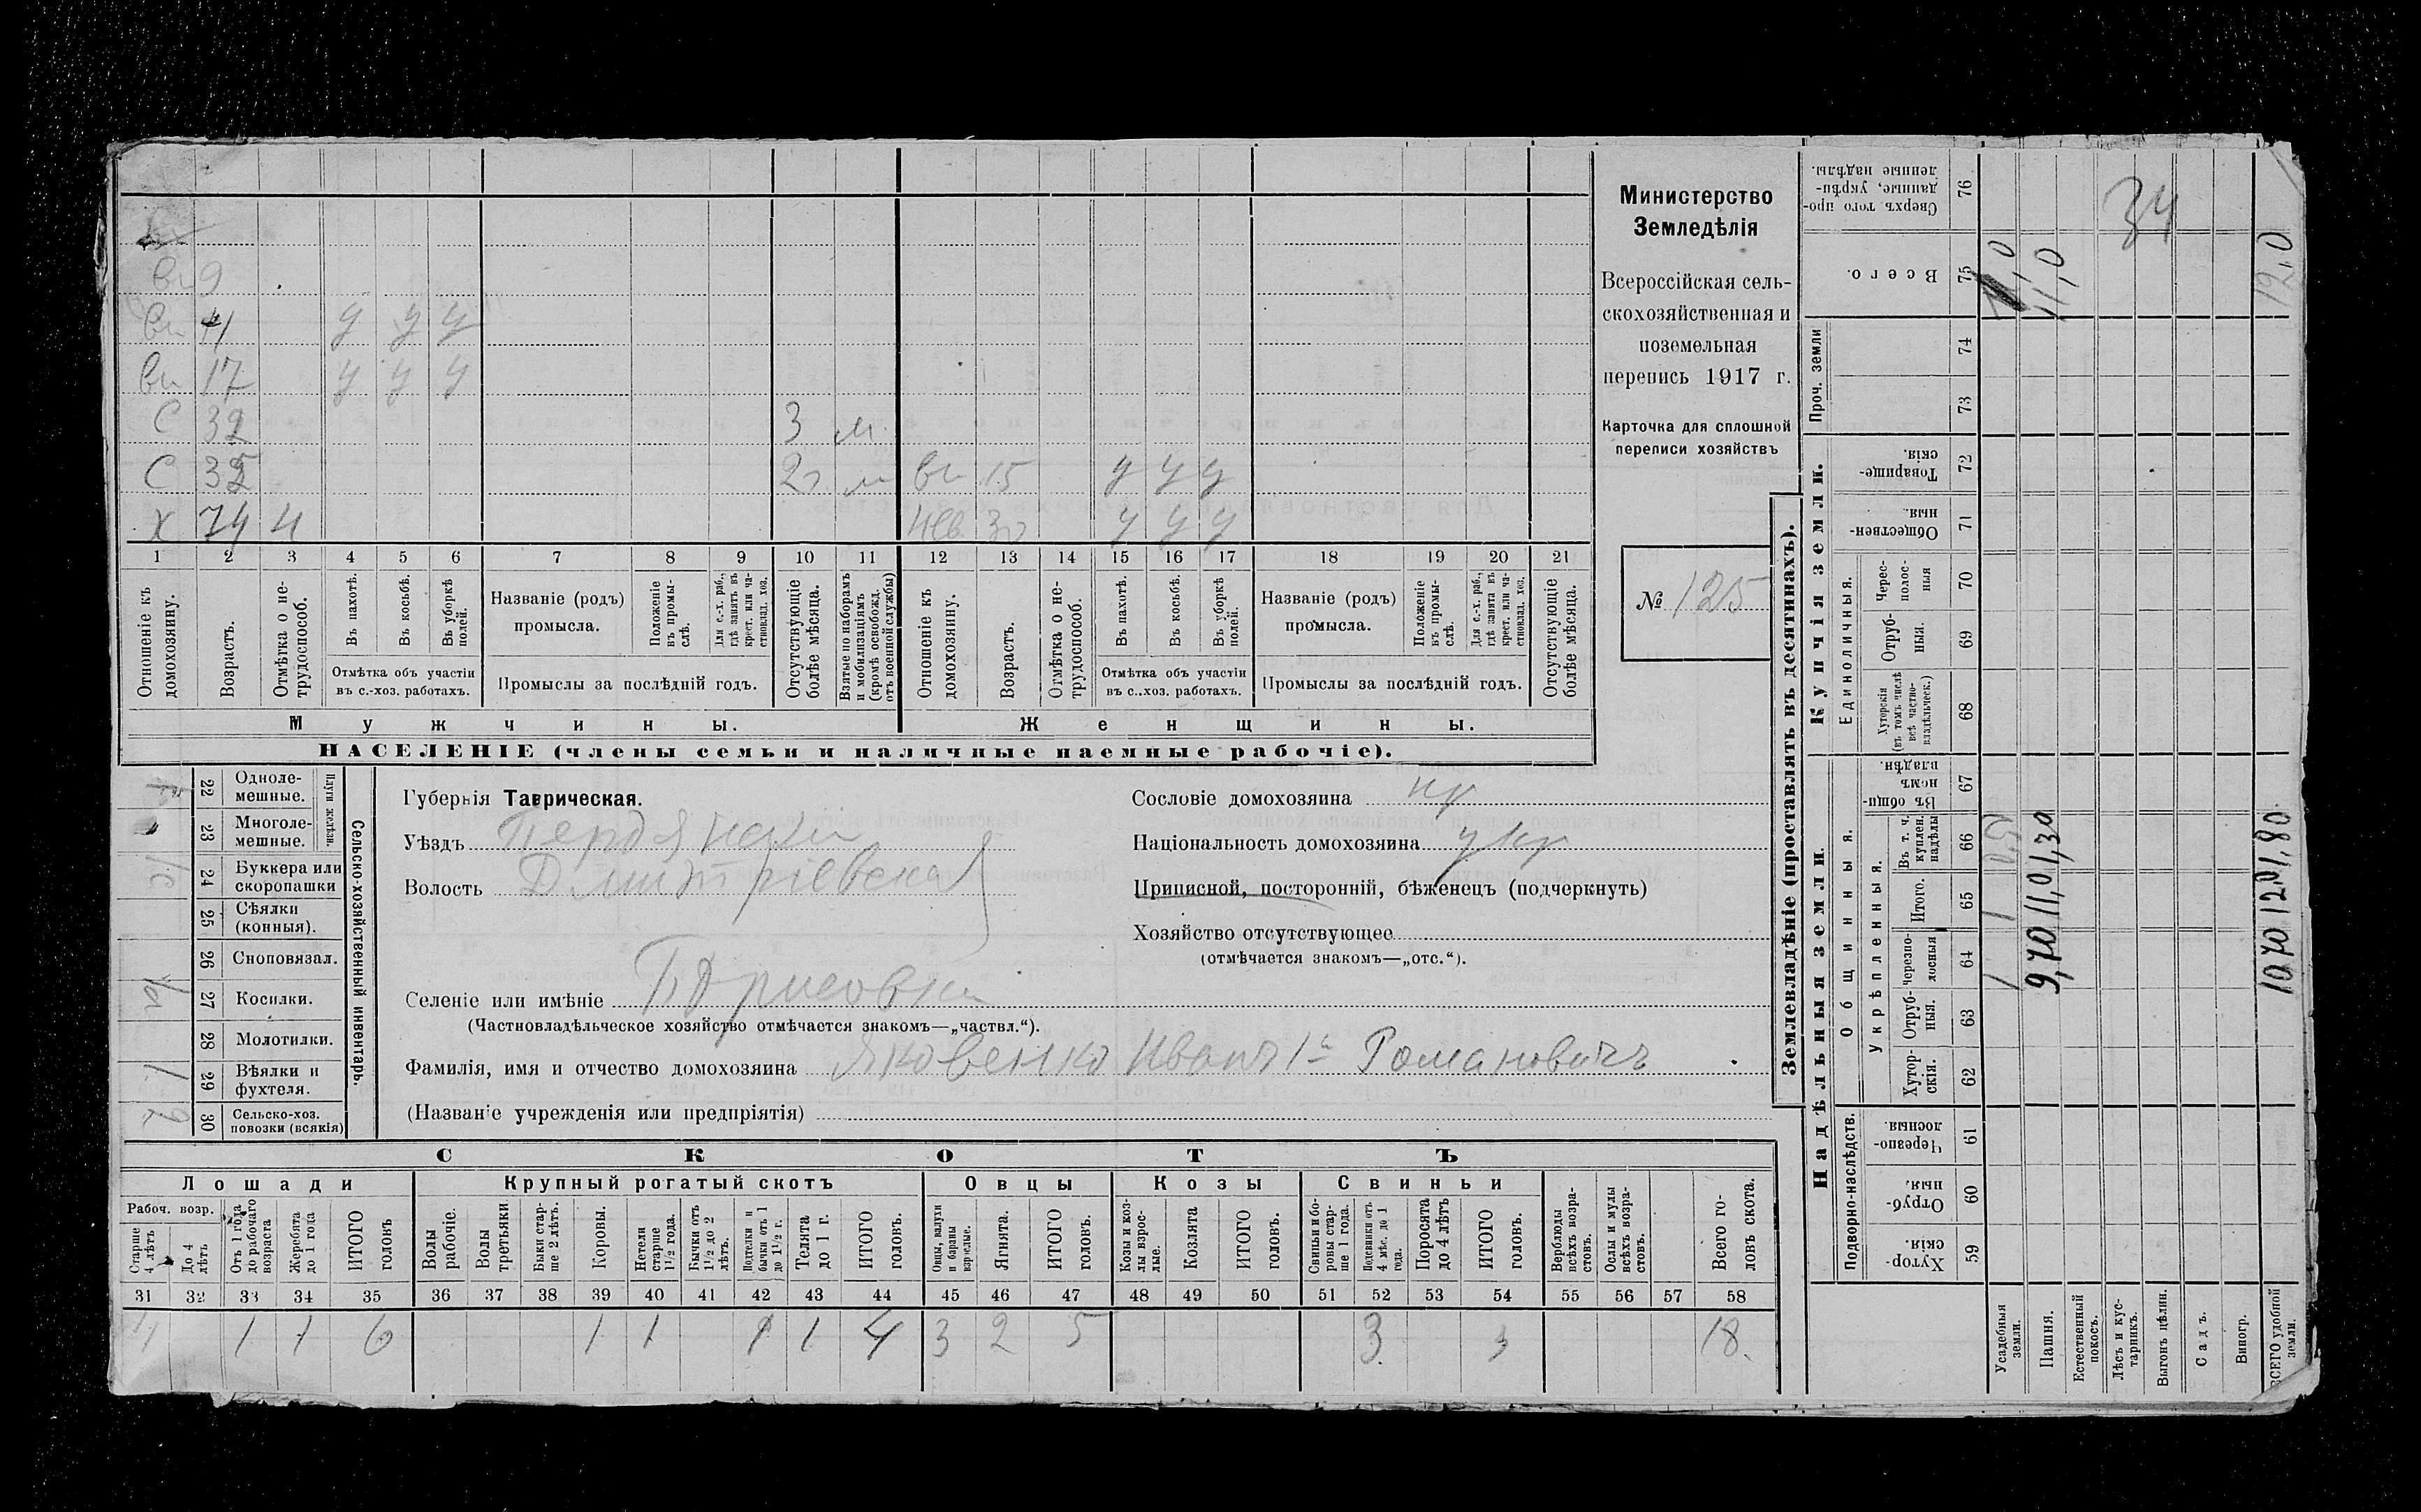 вн 9
вн 11 у у у
вн 17 у у у
С 32 3 м.
С 35 2 г. м вн 15 у у у
Х 74 н нев. 30 у у у
1 2 3 4 5 6 7 8 9 10 11 12 13 14 15 16 17 18 19 20 21
Отношеніе къ домохозяину.
Возрастъ.
Отмѣтка о не-трудоспособ.
Въ пахотѣ.
Въ косьбѣ.
Въ уборкѣ полей.
Отмѣтка объ участіи въ с.-хоз. работахъ.
Названіе (родъ) промысла.
Положеніе въ промы-слѣ.
Для с.-х. раб., гдѣ занятъ въ крест. или ча-стновлад. хоз.
Промыслы за послѣдній годъ.
Отсутствующіе болѣе мѣсяца.
Взятые по наборамъ и мобилизаціямъ (кромѣ освобожд. отъ военной службы)
Отношеніе къ домохозяину.
Возрастъ.
Отмѣтка о не-трудоспособ.
Въ пахотѣ.
Въ косьбѣ.
Въ уборкѣ полей.
Отмѣтка объ участіи въ с..хоз. работахъ.
Названіе (родъ) промысла.
Положеніе въ промы-слѣ.
Для с.-х. раб., гдѣ занята въ крест. или ча-стновлад. хоз.
Промыслы за послѣдній годъ.
Отсутствующіе болѣе мѣсяца.
Мужчины.
Женщины.
НАСЕЛЕНІЕ (члены семьи и наличные наемные рабочіе).
Министерство
Земледѣлія
Всероссійская сель-
скохозяйственная и
поземельная
перепись 1917 г.
Карточка для сплошной
переписи хозяйствъ
№ 125
22 Одноле-мешные.
23 Многоле-мешные.
Плуги желѣзн.
24 Буккера или скоропашки
25 Сѣялки (конныя).
26 Сноповязал.
27 Косилки.
28 Молотилки.
29 Вѣялки и фухтеля. 1
30 Сельско-хоз. повозки (всякія) 2
Сельско-хозяйственный инвентарь.
Губернія Таврическая.
Уѣздъ Бердянскій
Волость Дмитріевская
Селеніе или имѣніе Борисовка
(Частновладѣльческое хозяйство отмѣчается знакомъ—„частвл.“).
Фамилія, имя и отчество домохозяина Яковенко Иванъ 1й Романовичъ
(Названіе учрежденія или предпріятія)
Сословіе домохозяина кр
Національность домохозяина укр
Приписной, посторонній, бѣженецъ (подчеркнуть)
Хозяйство отсутствующее
(отмѣчается знакомъ—„отс.“).
СКОТЪ
Лошади
Крупный рогатый скотъ
Овцы
Козы
Свиньи
Рабоч. возр.
Старше 4 лѣтъ
До 4 лѣтъ
Отъ 1 года до рабочаго возраста
Жеребята до 1 года
ИТОГО головъ
Волы рабочіе.
Волы третьяки
Быки стар-ше 2 лѣтъ.
Коровы.
Нетели старше 1½ года.
Бычки отъ 1½ до 2 лѣтъ.
Подтелки и бычки отъ 1 до 1½ г.
Телята до 1 г.
ИТОГО головъ.
Овцы, валухи и бараны взрослые.
Ягнята.
ИТОГО головъ.
Козы и коз-лы взрос-лые.
Козлята
ИТОГО головъ.
Свиньи и бо-ровы стар-ше 1 года.
Подсвинки отъ 4 мѣс. до 1 года.
Поросята до 4 лѣтъ
ИТОГО головъ.
Верблюды всѣхъ возра-стовъ.
Ослы и мулы всѣхъ возра-стовъ.
Всего го-ловъ скота.
31 32 33 34 35 36 37 38 39 40 41 42 43 44 45 46 47 48 49 50 51 52 53 54 55 56 57 58
4 1 1 6 1 1 1 1 4 3 2 5 3 3 18.
Землевладѣніе (проставлять въ десятинахъ).
Надѣльныя земли
Купчія земли.
Проч. земли
Подворно-наслѣдств.
Общинныя.
Укрѣпленныя.
Единоличныя.
Сверхъ того про-данные, укрѣп-ленные надѣлы. 76
Всего. 75
74
73
Товарище-скія. 72
Обществен-ныя. 71
Черес-полос-ныя 70
Отруб-ныя. 69
Хуторскія (въ томъ числѣ всѣ частно-владѣльческ.) 68
Въ общи-номъ владѣн. 67
Въ т. ч. куплен. надѣлы 66
Итого. 65
Черезпо-лосныя 64
Отруб-ныя. 63
Хутор-скія. 62
Черезпо-лосныя. 61
Отруб-ныя. 60
Хутор-скія. 59
Усадебныя земли.
Пашня.
Естественный покосъ.
Лѣсъ и кус-тарникъ.
Выгонъ цѣлин.
Садъ.
Виногр.
ВСЕГО удобной земли.
34
11,0
12,0
9,70 11,0 1,30